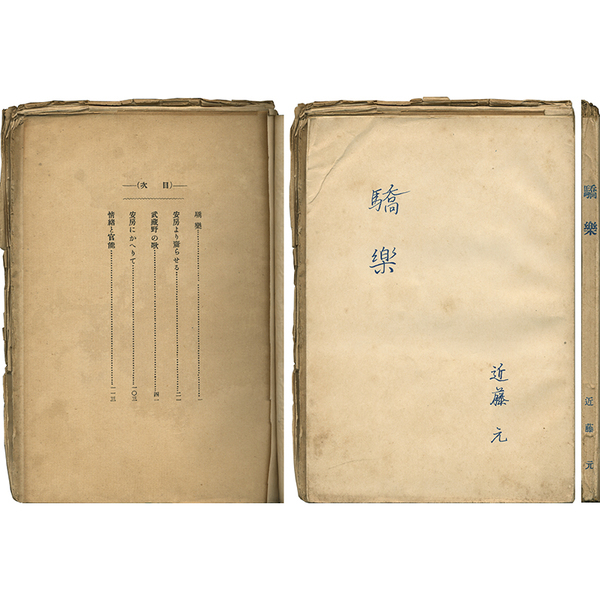 (目次)
驕樂……一
安房より齎らせる……二一
武藏野の歌……四一
安房にかへりて……一〇三
情緒と官能……一一三
驕樂
近藤元
驕樂
近藤元